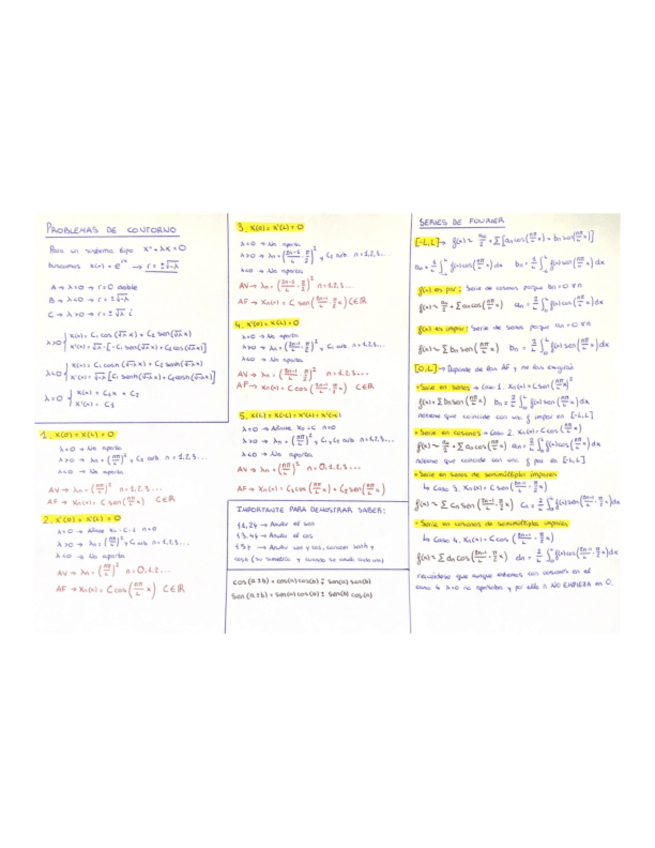 PROBLEMAS DE CONTORNO
Para un sistema tipo X'' + λX = 0
buscamos X(x) = e^{rx} → r = ±√-λ
A → λ=0 → r=0 doble
B → λ<0 → r = ±√-λ
C → λ>0 → r = ±√λ i
λ>0 { X(x) = C₁ cos(√λ x) + C₂ sen(√λ x)
X'(x) = √λ · [-C₁ sen(√λ x) + C₂ cos(√λ x)]
λ<0 { X(x) = C₁ cosh(√-λ x) + C₂ senh(√-λ x)
X'(x) = √-λ [C₁ senh(√-λ x) + C₂ cosh(√-λ x)]
λ=0 { X(x) = C₁x + C₂
X'(x) = C₁
1. X(0) = X(L) = 0
λ=0 → No aporta
λ>0 → λn = (nπ/L)², C₂ arb. n=1,2,3...
λ<0 → No aporta
AV → λn = (nπ/L)² n=1,2,3...
AF → Xn(x) = C sen(nπ/L x) C∈ℝ
2. X'(0) = X'(L) = 0
n=0
λ>0 → λn = (nπ/L)², C₁ arb. n=1,2,3...
λ<0 → No aporta
AV → λn = (nπ/L)² n=0,1,2...
AF → Xn(x) = C cos(nπ/L x) C∈ℝ
3. X(0) = X'(L) = 0
λ=0 → No aporta
λ>0 → λn = (2n-1/L · π/2)², C₂ arb. n=1,2,3...
λ<0 → No aporta
AV → λn = (2n-1/L · π/2)² n=1,2,3...
AF → Xn(x) = C sen(2n-1/L · π/2 x) C∈ℝ
4. X'(0) = X(L) = 0
λ=0 → No aporta
λ>0 → λn = (2n-1/L · π/2)², C₁ arb. n=1,2,3...
λ<0 → No aporta
AV → λn = (2n-1/L · π/2)² n=1,2,3...
AF → Xn(x) = C cos(2n-1/L · π/2 x) C∈ℝ
5.
n=0
λ>0 → λn = (nπ/L)², C₁ y C₂ arb. n=1,2,3...
λ<0 → No aporta
AV → λn = (nπ/L)² n=0,1,2,3...
AF → Xn(x) = C₁ cos(nπ/L x) + C₂ sen(nπ/L x)
IMPORTANTE PARA DEMOSTRAR SABER:
1,2 → Anular el sen
3,4 → Anular el cos
5 → Anular sen y cos, conocer senh y
cosh (su simetría y cuando se anula cada uno)
cos(a±b) = cos(a)cos(b) ∓ sen(a)sen(b)
sen(a±b) = sen(a)cos(b) ± sen(b)cos(a)
SERIES DE FOURIER
[-L,L] → f(x) ~ a₀/2 + Σ [an cos(nπ/L x) + bn sen(nπ/L x)]
an = 1/L ∫ f(x) cos(nπ/L x) dx bn = 1/L ∫ f(x) sen(nπ/L x) dx
f(x) es par: Serie de cosenos porque bn=0 ∀n
f(x) ~ a₀/2 + Σ an cos(nπ/L x) an = 2/L ∫ f(x) cos(nπ/L x) dx
f(x) es impar: Serie de senos porque an=0 ∀n
f(x) ~ Σ bn sen(nπ/L x) bn = 2/L ∫ f(x) sen(nπ/L x) dx
[0,L] → Depende de las AF y me las exigirá
• Serie en senos → Caso 1. Xn(x) = C sen(nπ/L x)
f(x) ~ Σ bn sen(nπ/L x) bn = 2/L ∫ f(x) sen(nπ/L x) dx
nótese que coincide con una f impar en [-L,L]
• Serie en cosenos → Caso 2. Xn(x) = C cos(nπ/L x)
f(x) ~ a₀/2 + Σ an cos(nπ/L x) an = 2/L ∫ f(x) cos(nπ/L x) dx
nótese que coincide con una f par en [-L,L]
• Serie en senos de semimúltiplos impares
↳ Caso 3. Xn(x) = C sen(2n-1/L · π/2 x)
f(x) ~ Σ cn sen(2n-1/L · π/2 x) cn = 2/L ∫ f(x) sen(2n-1/L · π/2 x) dx
• Serie en cosenos de semimúltiplos impares
↳ Caso 4. Xn(x) = C cos(2n-1/L · π/2 x)
f(x) ~ Σ dn cos(2n-1/L · π/2 x) dn = 2/L ∫ f(x) cos(2n-1/L · π/2 x) dx
recuérdese que aunque estemos con cosenos en el
caso 4 λ=0 no aportaba y por ello n NO EMPIEZA en 0.